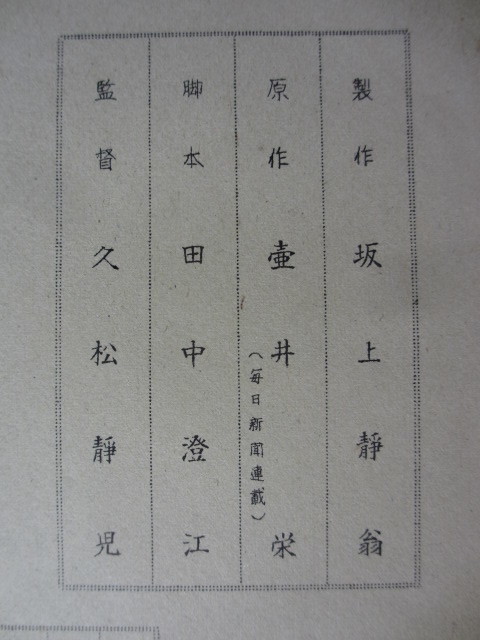 製作 坂上靜翁
原作 壷井栄
(毎日新聞連載)
脚本 田中澄江
監督 久松靜児